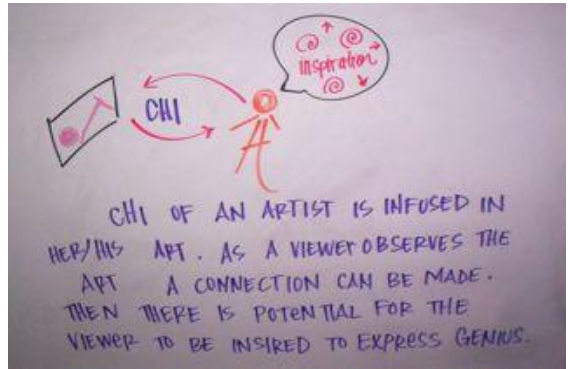 inspiration
CHI
CHI OF AN ARTIST IS INFUSED IN
HER/HIS ART. AS A VIEWER OBSERVES THE
ART A CONNECTION CAN BE MADE.
THEN THERE IS POTENTIAL FOR THE
VIEWER TO BE INSIRED TO EXPRESS GENIUS.